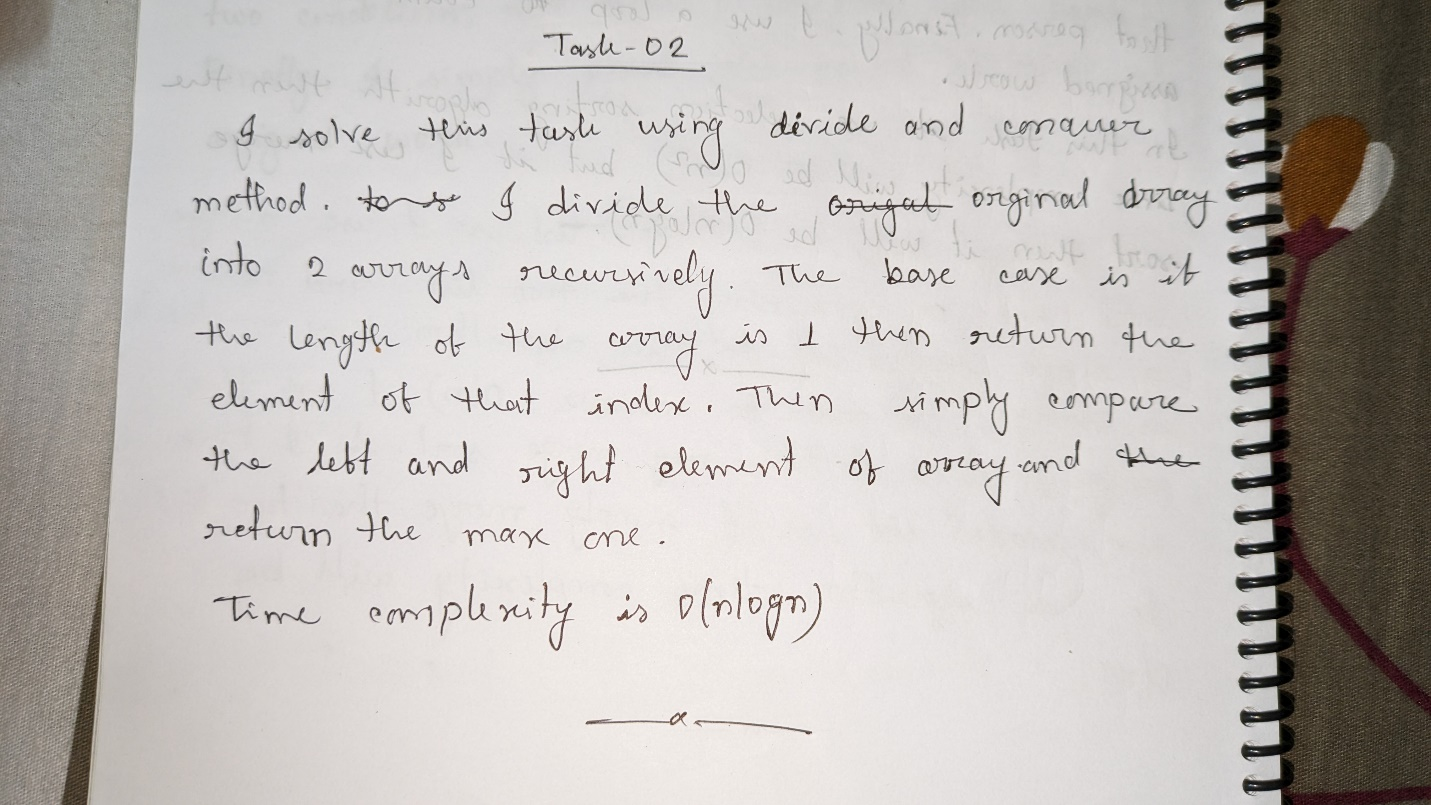 Task-02
I solve this task using divide and conquer
method. I divide the orginal array
into 2 arrays recursively. The base case is if
the length of the array is 1 then return the
element of that index. Then simply compare
the left and right element of array and the
return the max one.
Time complexity is O(nlogn)